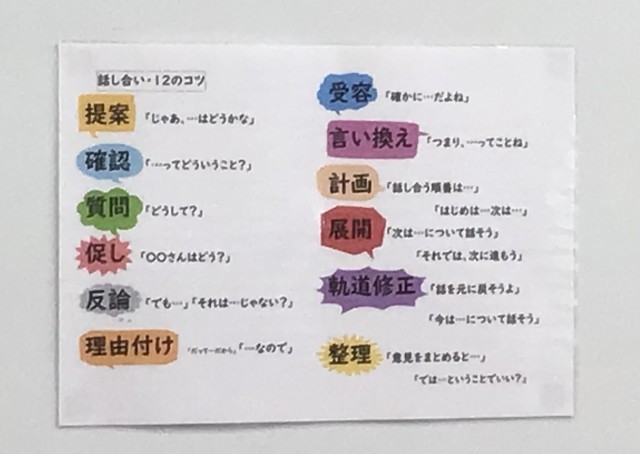 話し合い・12のコツ
提案 「じゃあ、…はどうかな」
確認 「…ってどういうこと?」
質問 「どうして?」
促し 「○○さんはどう?」
反論 「でも…」「それは…じゃない?」
理由付け 「だって…だから」「…なので」
受容 「確かに…だよね」
言い換え 「つまり、…ってことね」
計画 「話し合う順番は…」
「はじめは…次は…」
展開 「次は…について話そう」
「それでは、次に進もう」
軌道修正 「話を元に戻そうよ」
「今は…について話そう」
整理 「意見をまとめると…」
「では…ということでいい?」